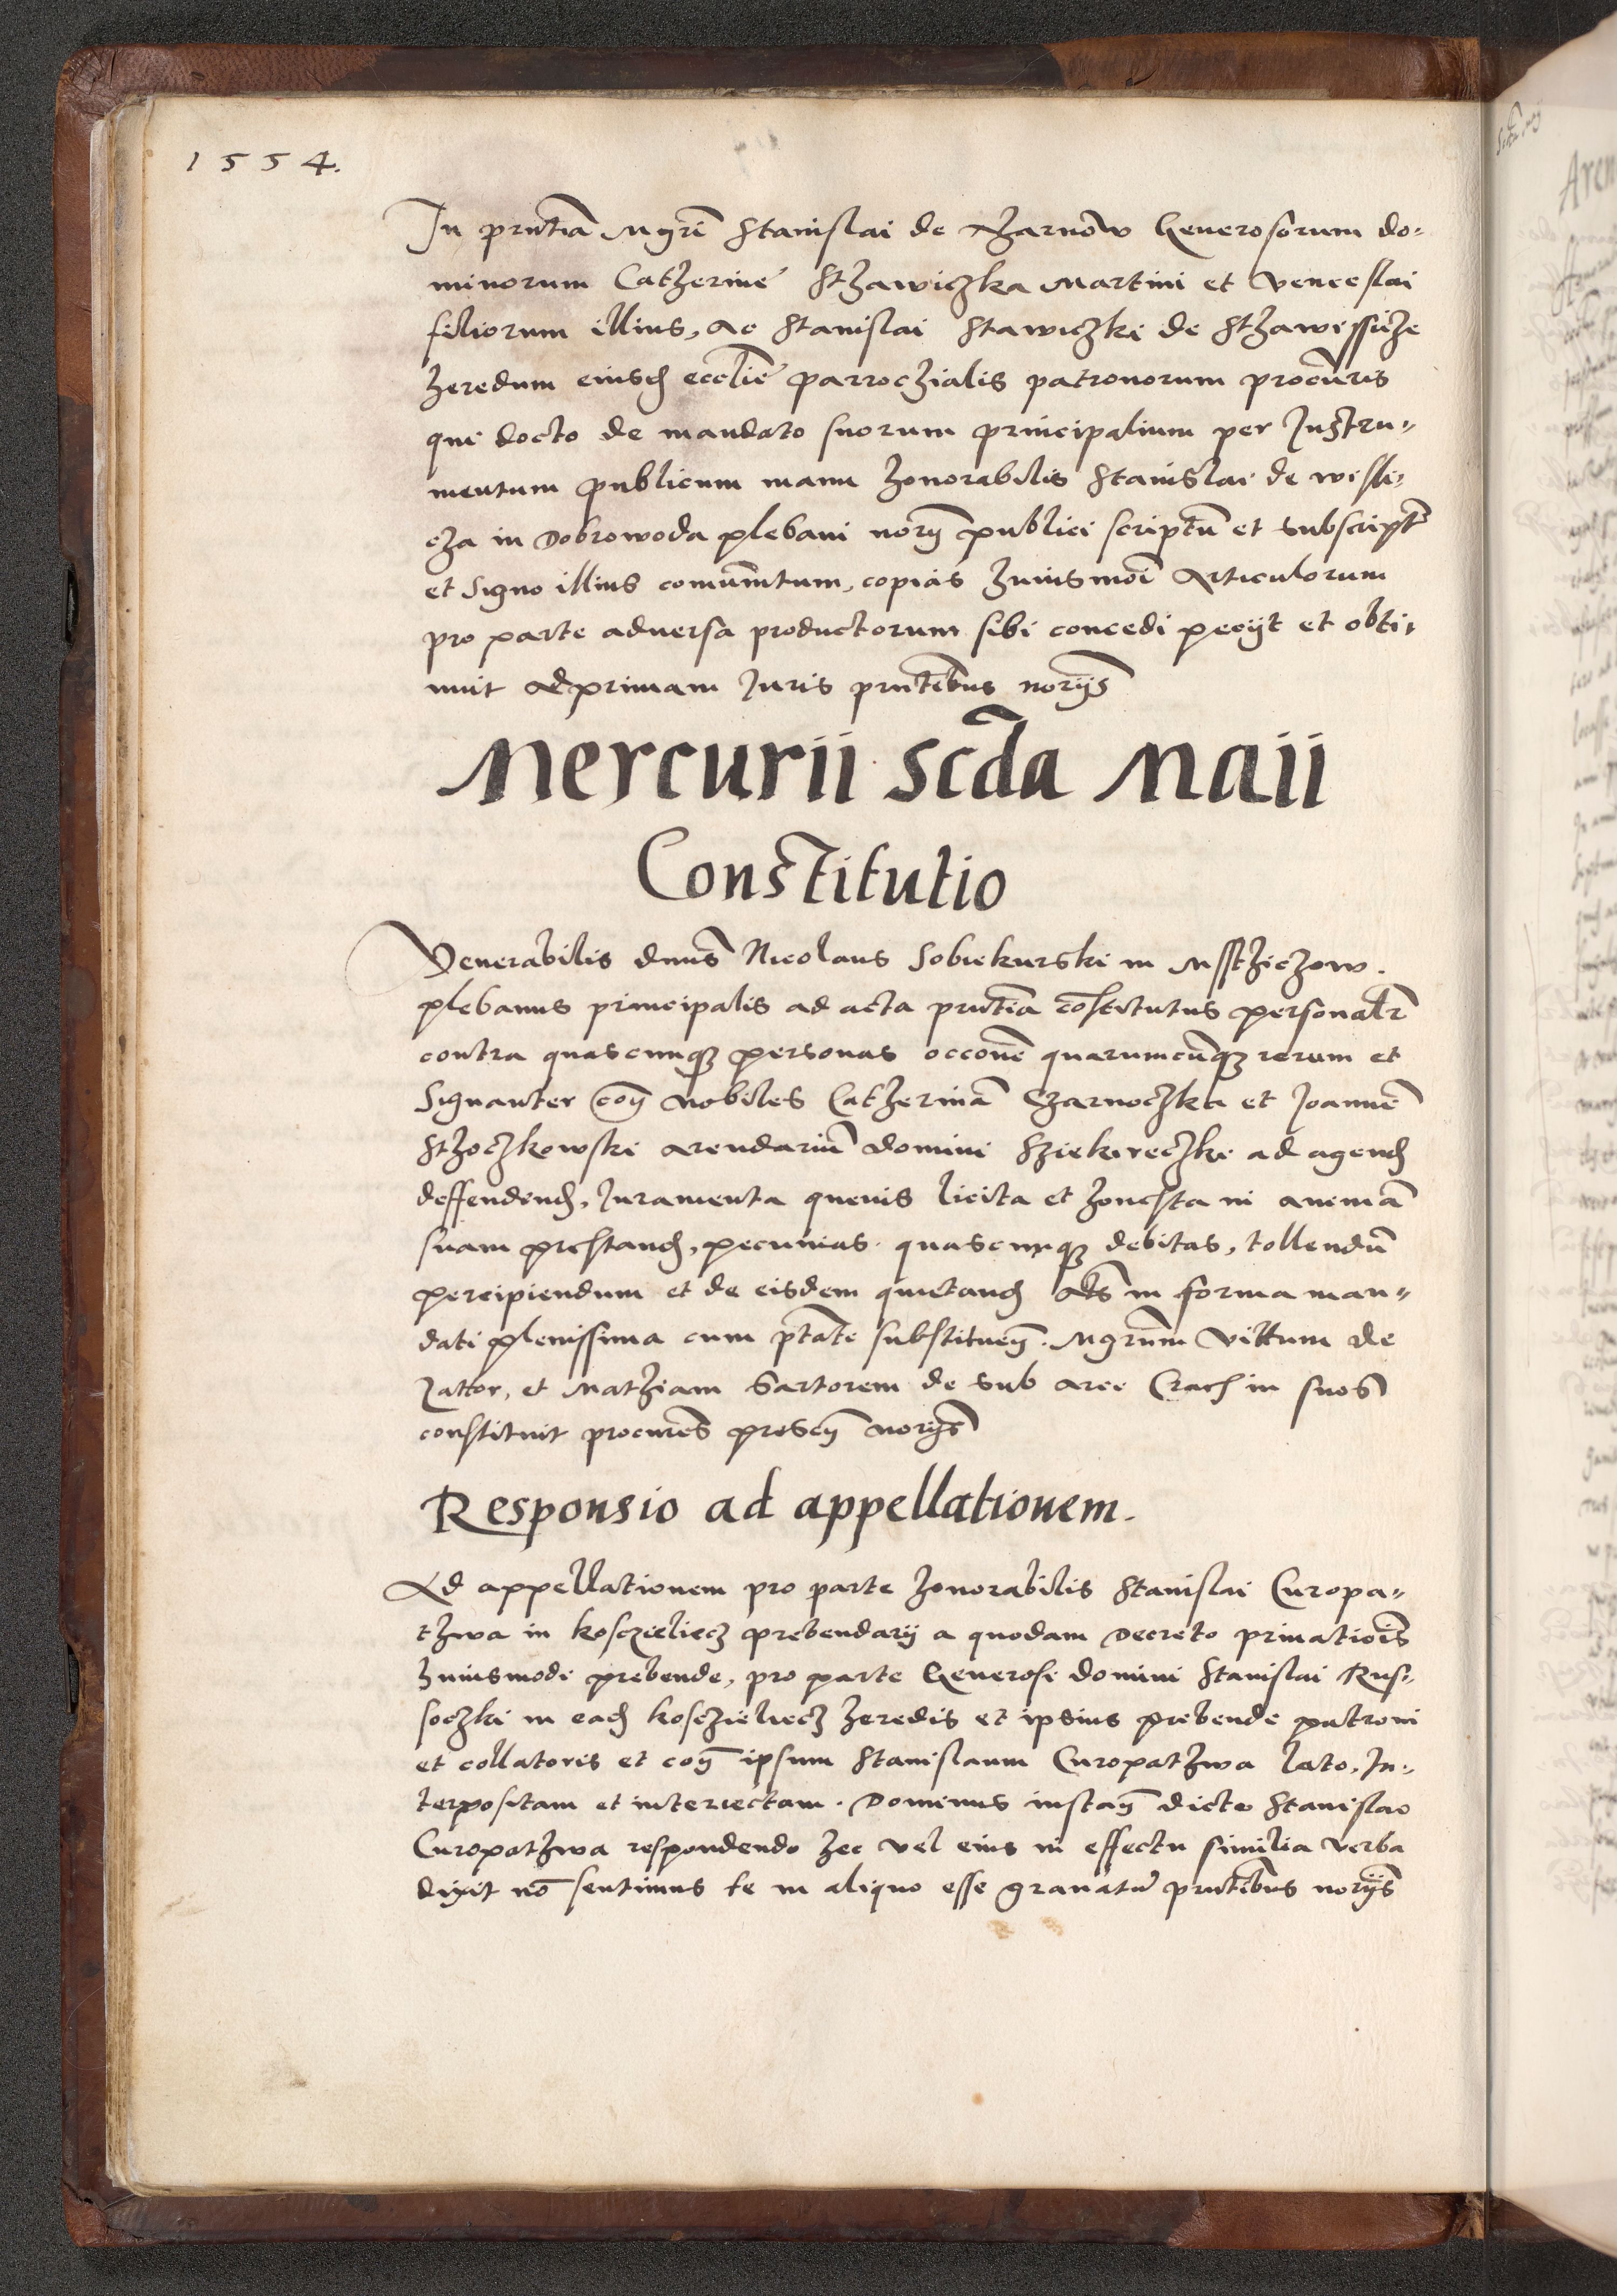 1554.
In pñtia Mgri Stanislai de Tharnow Generosorum do-
minorum Catherine Sthawiczka Martini et Venceslai
filiorum illius, ac Stanislai Stawiczki de Sthawissicze
heredum eiusd ecclie parrochialis patronorum procuris
qui docto de mandato suorum principalium per Instru-
mentum publicum manu honorabilis Stanislai de Wisli-
cza in Dobrowoda plebani norÿ publici scriptū et subscript
et signo illius comunitum, copias huiusmoi Articulorum
pro parte adversa productorum sibi concedi peciit et obti-
nuit ad primam Juris pñtibus norijs
Mercurii scda Maii
Constitutio
Venerabilis dnus Nicolaus Sobiekurski in Msthiczow.
plebanus principalis ad acta pñtia cōstitutus personalr
contra quascunq personas occone quarumcūq rerum et
Signanter con Nobiles Catherinā Czarnoczka et Joannē
Sthoczkowski arendariū domini Sziekireczki ad agend
deffendend, Juramenta quevis licita et honesta in animā
suam prestand, pecunias quascunq debitas, tollendū
percipiendum et de eisdem quietand Ats in forma man-
dati plenissima cum ptate substituen. Mgrum Vittum de
Zattor, et Mathiam Sartorem de sub arce Crach in suos
constituit procures presen norijs
Responsio ad appellationem.
Ad appellationem pro parte honorabilis Stanislai Curopa-
thwa in Koscieliecz prebendarij a quodam Decreto privatiois
huiusmodi prebende, pro parte Generosi domini Stanislai Rus-
soczki in ead Kosczieliecz heredis et ipsius prebende patroni
et collatoris et con ipsum Stanislaum Curopathwa lato, In-
terpositam et interiectam. Dominus instan dicto Stanislao
Curopathwa respondendo hec vel eius in effectu similia verba
dixit nō sentimus te in aliquo esse gravatū pñtibus norijs